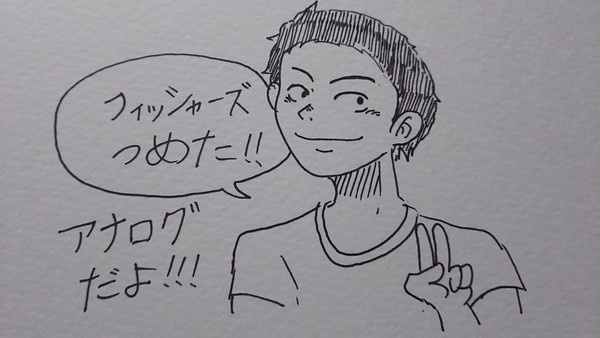 フィッシャーズ
つめた!!
アナログ
だよ!!!